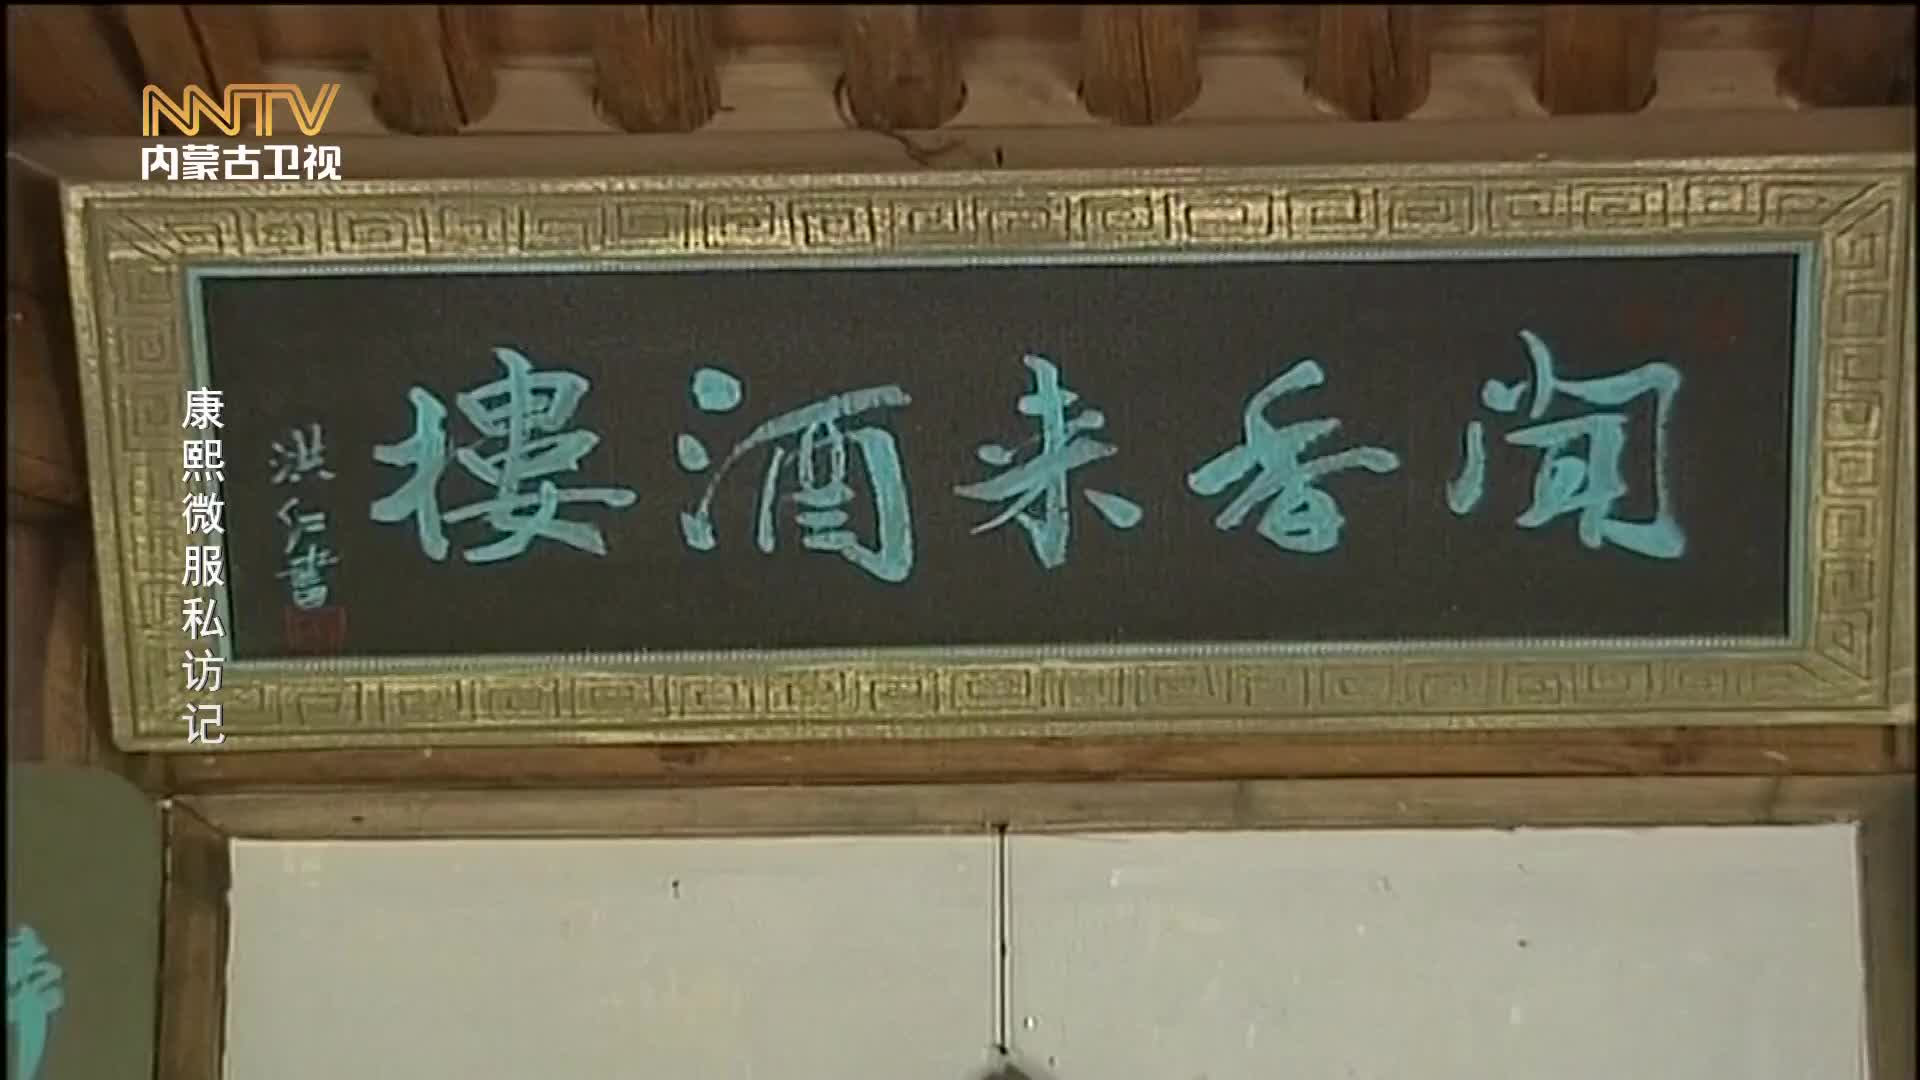 NNTV
内蒙古卫视
康熙微服私访记
闻香来酒樓
洪仁書